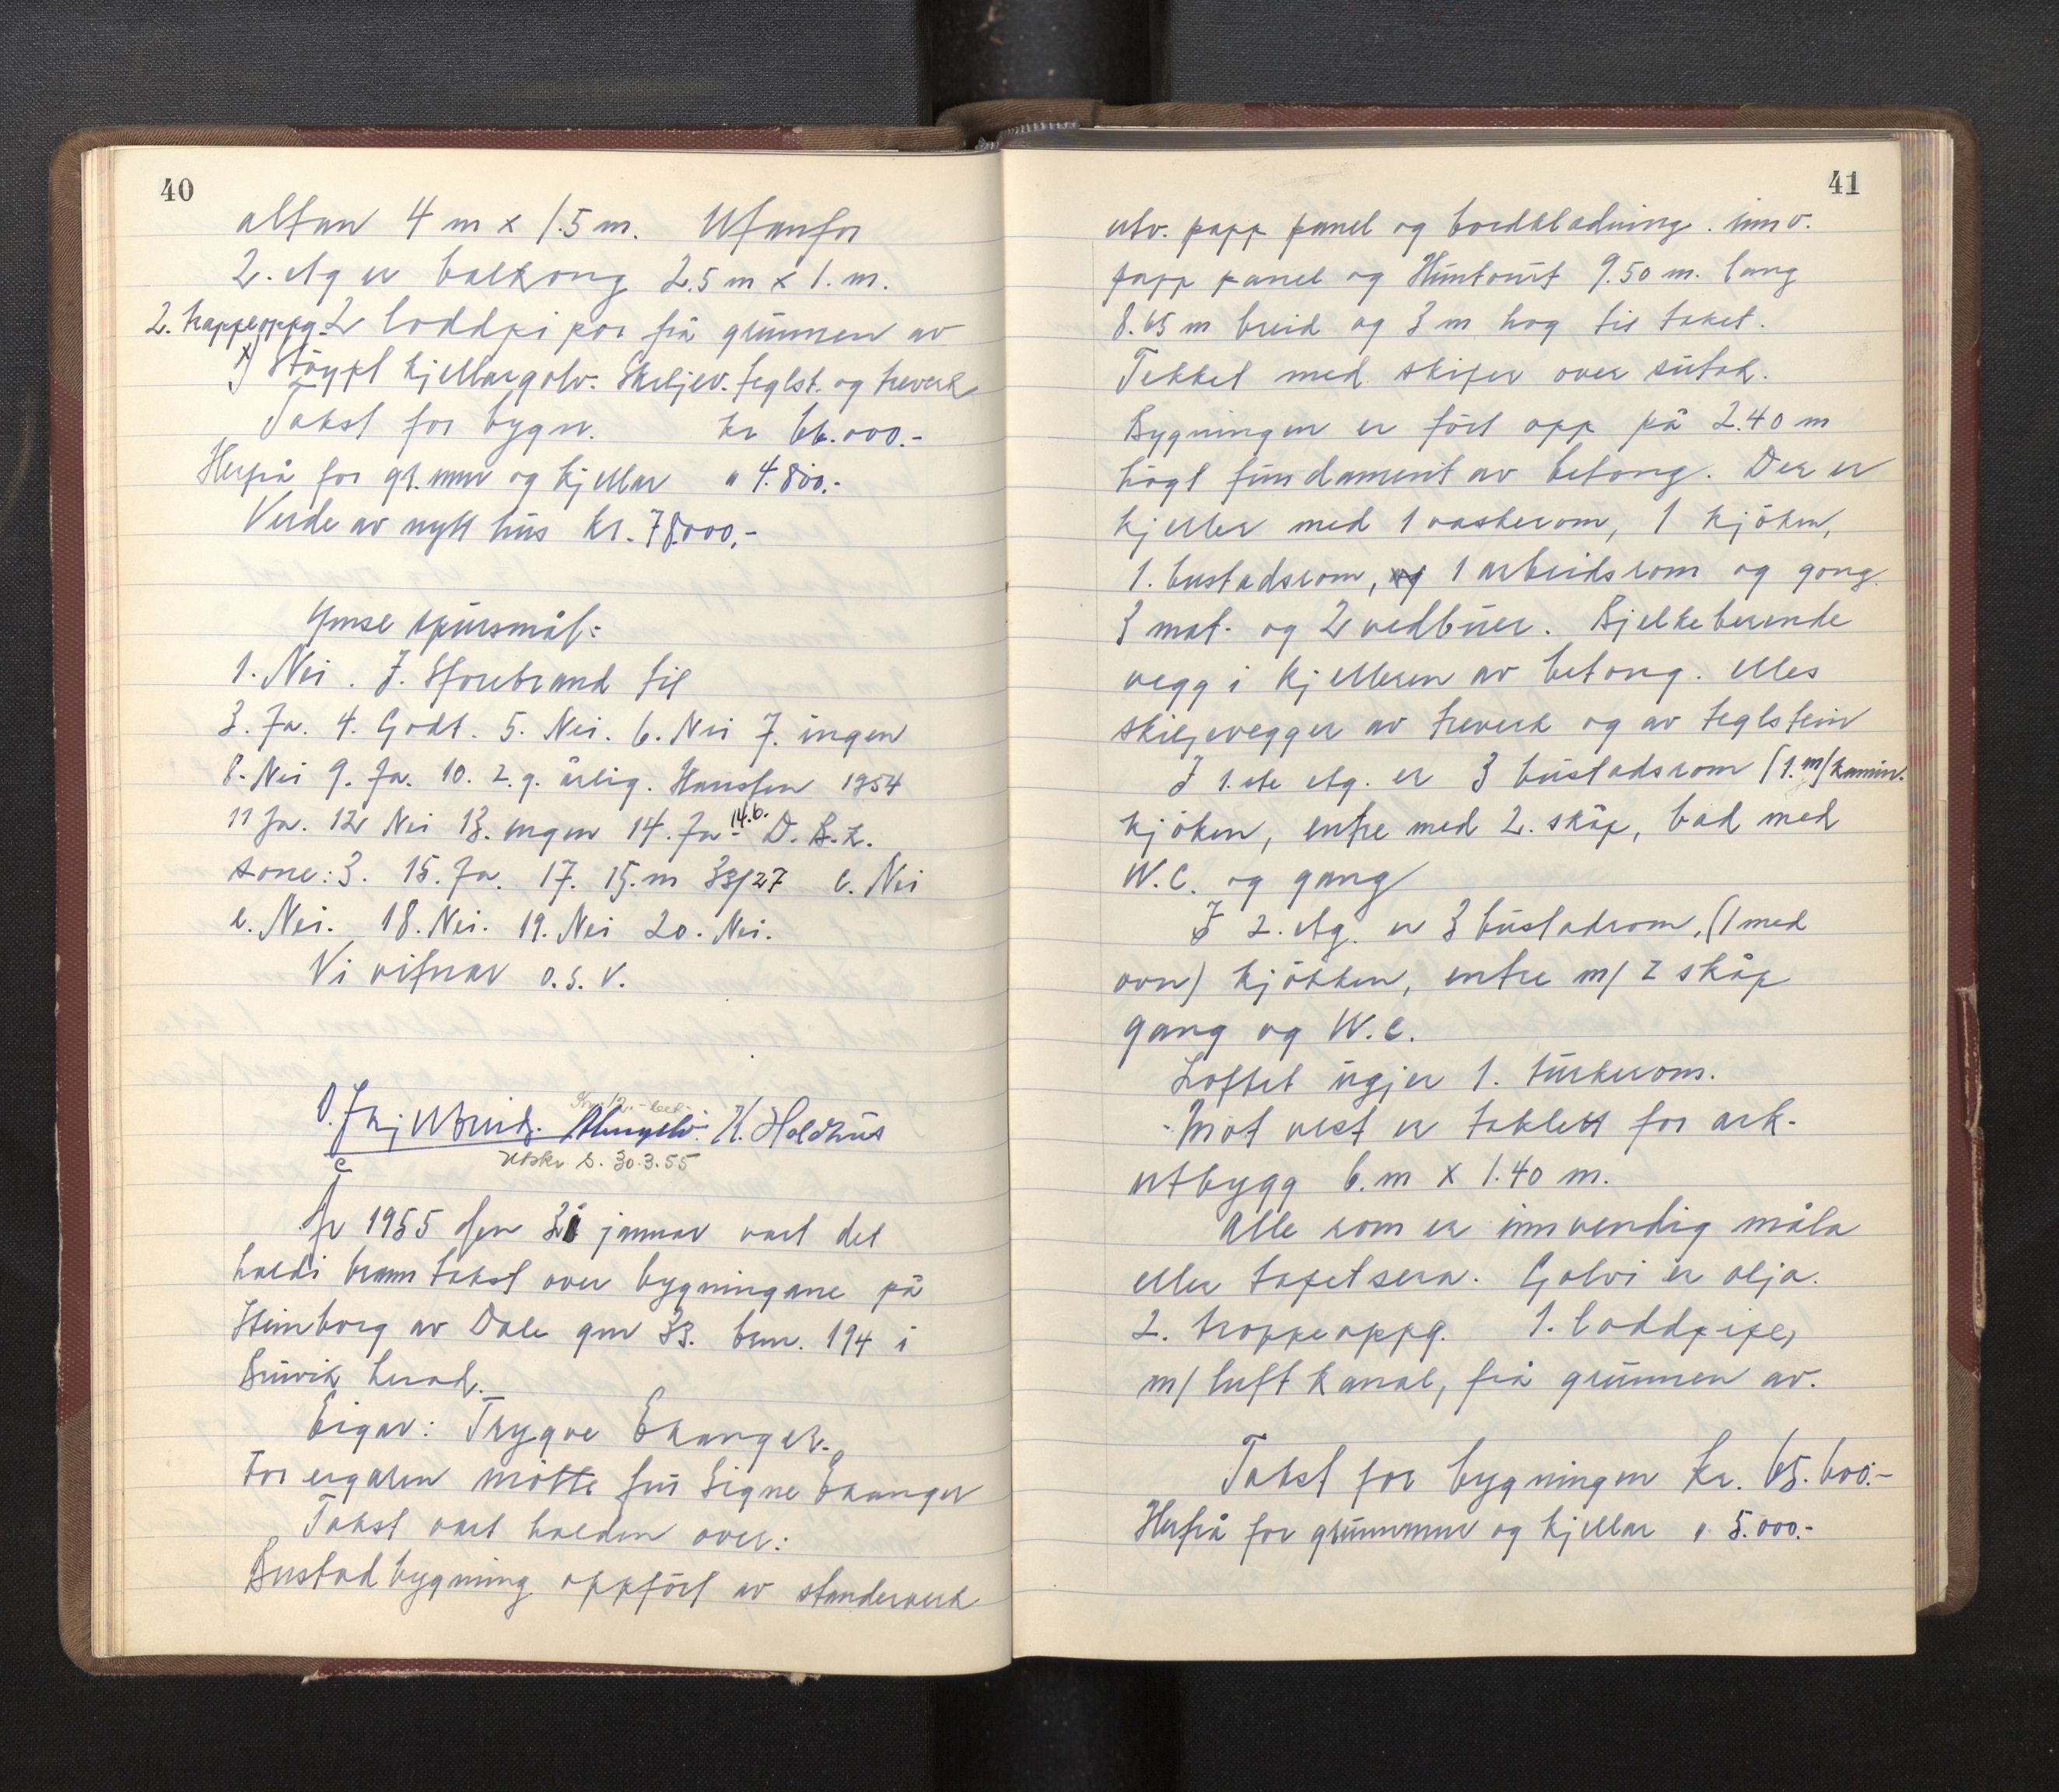 40
altan 4 m x 1.5 m. Utanfor
2. etg er balkong 2.5 m x 1. m.
2. trappeoppg. 2 loddpipor frå grunnen av
x) Støypt kjellargolv. Skiljev. teglst. og treverk
Takst for bygn. kr 66.000.-
Herfrå for gr.mur og kjellar " 4.800.-
Verde av nytt hus kr. 78.000.-
Ymse spursmål:
1. Nei. J. Storebrand til
3. Ja. 4. Godt. 5. Nei. 6. Nei 7. ingen
8. Nei 9. Ja. 10. 2.g. årlig. Hausten 1954
11 Ja. 12 Nei 13. ingen 14. Ja - 14.b. D.B.L.
sone: 3. 15. Ja. 17. 15. m 33/27 c. Nei
e. Nei. 18. Nei. 19. Nei 20. Nei.
Vi vitnar o.s.v.
Kr. 12.- bet.
H. Holdhus
Utskr. S. 30.3.55
År 1955 den 21 januar vart det
haldi branntakst over bygningane på
Heimborg av Dale gnr 33. bnr. 194 i
Bruvik herad.
Eigar: Trygve Ekanger.
For eigaren møtte fru Signe Ekanger
Takst vart halden over:
Bustadbygning oppført av standerverk
41
utv. papp panel og bordkledning. innv.
papp panel og Huntonit 9.50 m. lang
8.65 m breid og 3 m høg til taket.
Tekket med skifer over sutak.
Bygningen er ført opp på 2.40 m
høgt fundament av betong. Der er
kjeller med 1 vaskerom, 1 kjøken,
1. bustadsrom, og 1 arbeidsrom og gong.
3 mat- og 2 vedbuer. Bjelkeberende
vegg i kjelleren av betong. elles
skiljevegger av treverk og av teglstein
I 1.ste etg. er 3 bustadsrom (1. m/kamin.
kjøken, entre med 2. skåp, bad med
W.C. og gang
I 2. etg. er 3 bustadrom, (1 med
ovn) kjøkken, entre m/ 2 skåp
gang og W.C.
Loftet utgjer 1. turkerom.
Mot vest er taklett for ark-
utbygg 6. m x 1.40 m.
Alle rom er innvendig måla
eller tapetsera. Golvi er olja.
2. trappeoppg. 1. loddpipe,
m/ luftkanal, frå grunnen av.
Takst for bygningen kr. 65.600.-
Herfrå for grunnmur og kjellar " 5.000.-